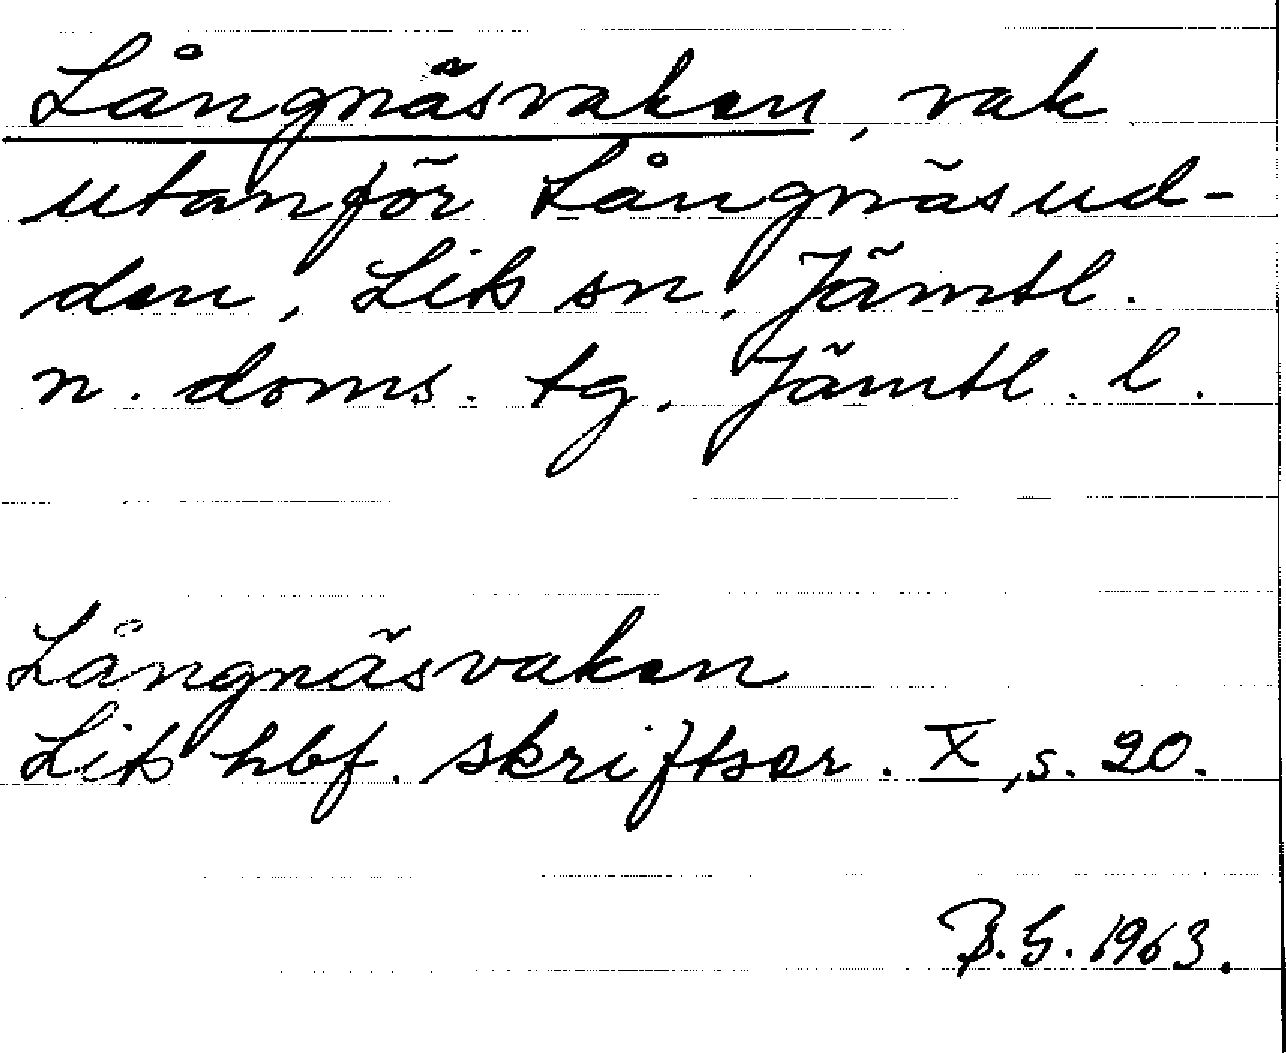 Långnäsvaken, vak
utanför Långnäsud-
den, Lits sn, Jämtl.
n. doms. tg. Jämtl. l.
Långnäsvaken
Lits hbf. skriftser. X, s. 20.
B.G. 1963.